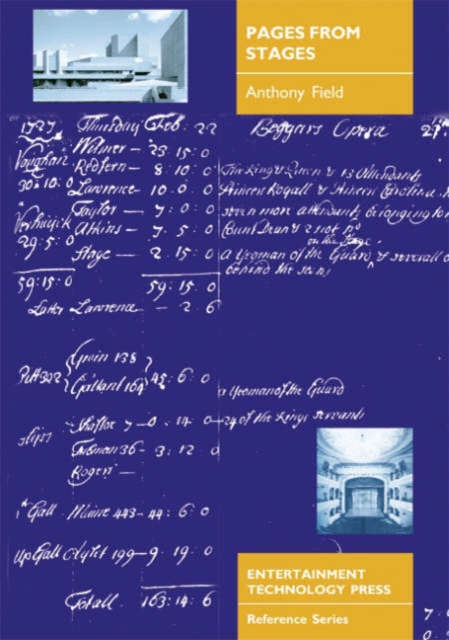 PAGES FROM
STAGES
Anthony Field
1727 Thursday Feb: 22 Beggars Opera 21
Vaughan Wilmer — 23 : 15 : 0
Redfern — 8 : 10 : 0 The King & Queen & 13 Attendants
30 : 10 : 0 Lawrence 10 : 0 : 0 Princess Royall & Princess Carolina
Taylor — 7 : 0 : 0 seven more attendants belonging to
29 : 5 : 0 Atkins — 7 : 5 : 0 & 2 not pd
on the Stage
Stage — 2 : 15 : 0 a Yeoman of the Guard, & severall
behind the
59 : 15 : 0 59 : 15 : 0
Latter Lawrence — 2 : 6
Pitt 302 Gwin 138
Gallant 164 45 : 6 : 0 a Yeoman of the Guard
slips Shafter 7 — 0 : 14 : 0 — 24 of the Kings servants
Tubman 36 — 3 : 12 : 0
Rogers —
1st Gall 443 — 44 : 6 : 0
up Gall 199 — 9 : 19 : 0
Totall 163 : 14 : 6
7 :
0
ENTERTAINMENT
TECHNOLOGY PRESS
Reference Series